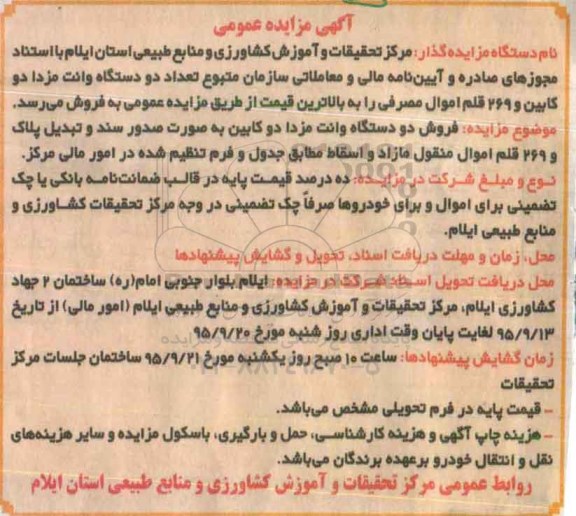 آگهی مزایده عمومی
نام دستگاه مزایده گذار: مرکز تحقیقات و آموزش کشاورزی و منابع طبیعی استان ایلام با استناد
مجوزهای صادره و آیین‌نامه مالی و معاملاتی سازمان متبوع تعداد دو دستگاه وانت مزدا دو
کابین و ۲۶۹ قلم اموال مصرفی را به بالاترین قیمت از طریق مزایده عمومی به فروش می‌رسد.
موضوع مزایده: فروش دو دستگاه وانت مزدا دو کابین به صورت صدور سند و تبدیل پلاک
و ۲۶۹ قلم اموال منقول مازاد و اسقاط مطابق جدول و فرم تنظیم شده در امور مالی مرکز.
نوع و مبلغ شرکت در مزایده: ده درصد قیمت پایه در قالب ضمانت‌نامه بانکی یا چک
تضمینی برای اموال و برای خودروها صرفاً چک تضمینی در وجه مرکز تحقیقات کشاورزی و
منابع طبیعی ایلام.
محل، زمان و مهلت دریافت اسناد، تحویل و گشایش پیشنهادها
محل دریافت تحویل اسناد شرکت در مزایده: ایلام بلوار جنوبی امام(ره) ساختمان ۲ جهاد
کشاورزی ایلام، مرکز تحقیقات و آموزش کشاورزی و منابع طبیعی ایلام (امور مالی) از تاریخ
۹۵/۹/۱۳ لغایت پایان وقت اداری روز شنبه مورخ ۹۵/۹/۲۰
زمان گشایش پیشنهادها: ساعت ۱۰ صبح روز یکشنبه مورخ ۹۵/۹/۲۱ ساختمان جلسات مرکز
تحقیقات
- قیمت پایه در فرم تحویلی مشخص می‌باشد.
- هزینه چاپ آگهی و هزینه کارشناسی، حمل و بارگیری، باسکول مزایده و سایر هزینه‌های
نقل و انتقال خودرو برعهده برندگان می‌باشد.
روابط عمومی مرکز تحقیقات و آموزش کشاورزی و منابع طبیعی استان ایلام